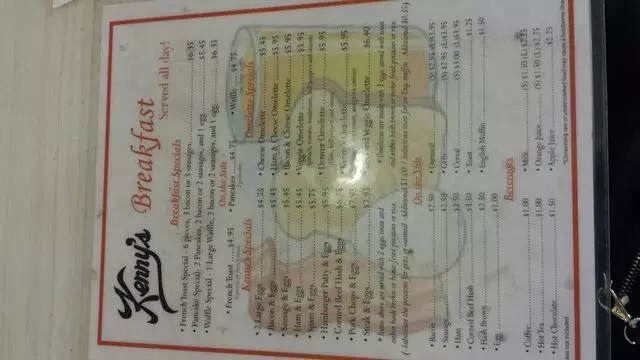 Kenny's Breakfast
Served all day!
Breakfast Specials
• French Toast Special - 6 pieces, 3 bacon or 3 sausages $6.35
• Pancake Special - 2 Pancakes, 2 bacon or 2 sausages, and 1 egg $5.45
• Waffle Special - 1 Large Waffle, 2 bacon or 2 sausages, and 1 egg $6.35
On the Side
• French Toast $4.95
• Pancakes $4.75
• Waffle $4.75
Kenny's Specials
• 2 Large Eggs $4.25
• Bacon & Eggs $5.45
• Sausage & Eggs $5.45
• Ham & Eggs $5.45
• Spam & Eggs $5.75
• Hamburger Patty & Eggs $5.95
• Corned Beef Hash & Eggs
• Pork Chops & Eggs
• Steak & Eggs
• Items above are served with 2 eggs, toast and
either hash brown or home fried potatoes or rice.
Omelette Specials
• Cheese Omelette $5.45
• Ham & Cheese Omelette $5.95
• Bacon & Cheese Omelette $5.95
• Veggie Omelette $5.95
• Denver Omelette $5.95
• Kenny's Omelette $5.95
Omelette $6.40
• Omelettes are made with 3 eggs served with toast
and either hash brown or home fried potatoes or rice.
On the Side
• Bacon $2.50
• Sausage $2.50
• Ham $2.50
• Corned Beef Hash $3.50
• Hash Brown $2.50
• Egg $1.00
• Oatmeal (S) $2.95 (L) $3.95
• Grits (S) $2.95 (L) $3.95
• Cereal (S) $3.00 (L) $3.95
• Toast $1.25
• English Muffin $1.50
Beverages
• Coffee $1.00
• Hot Tea $1.00
• Hot Chocolate $1.50
• Milk (S) $1.50 (L) $2.25
• Orange Juice (S) $1.50 (L) $2.25
• Apple Juice $2.25
not included
*Consuming raw or undercooked food may cause a foodborne